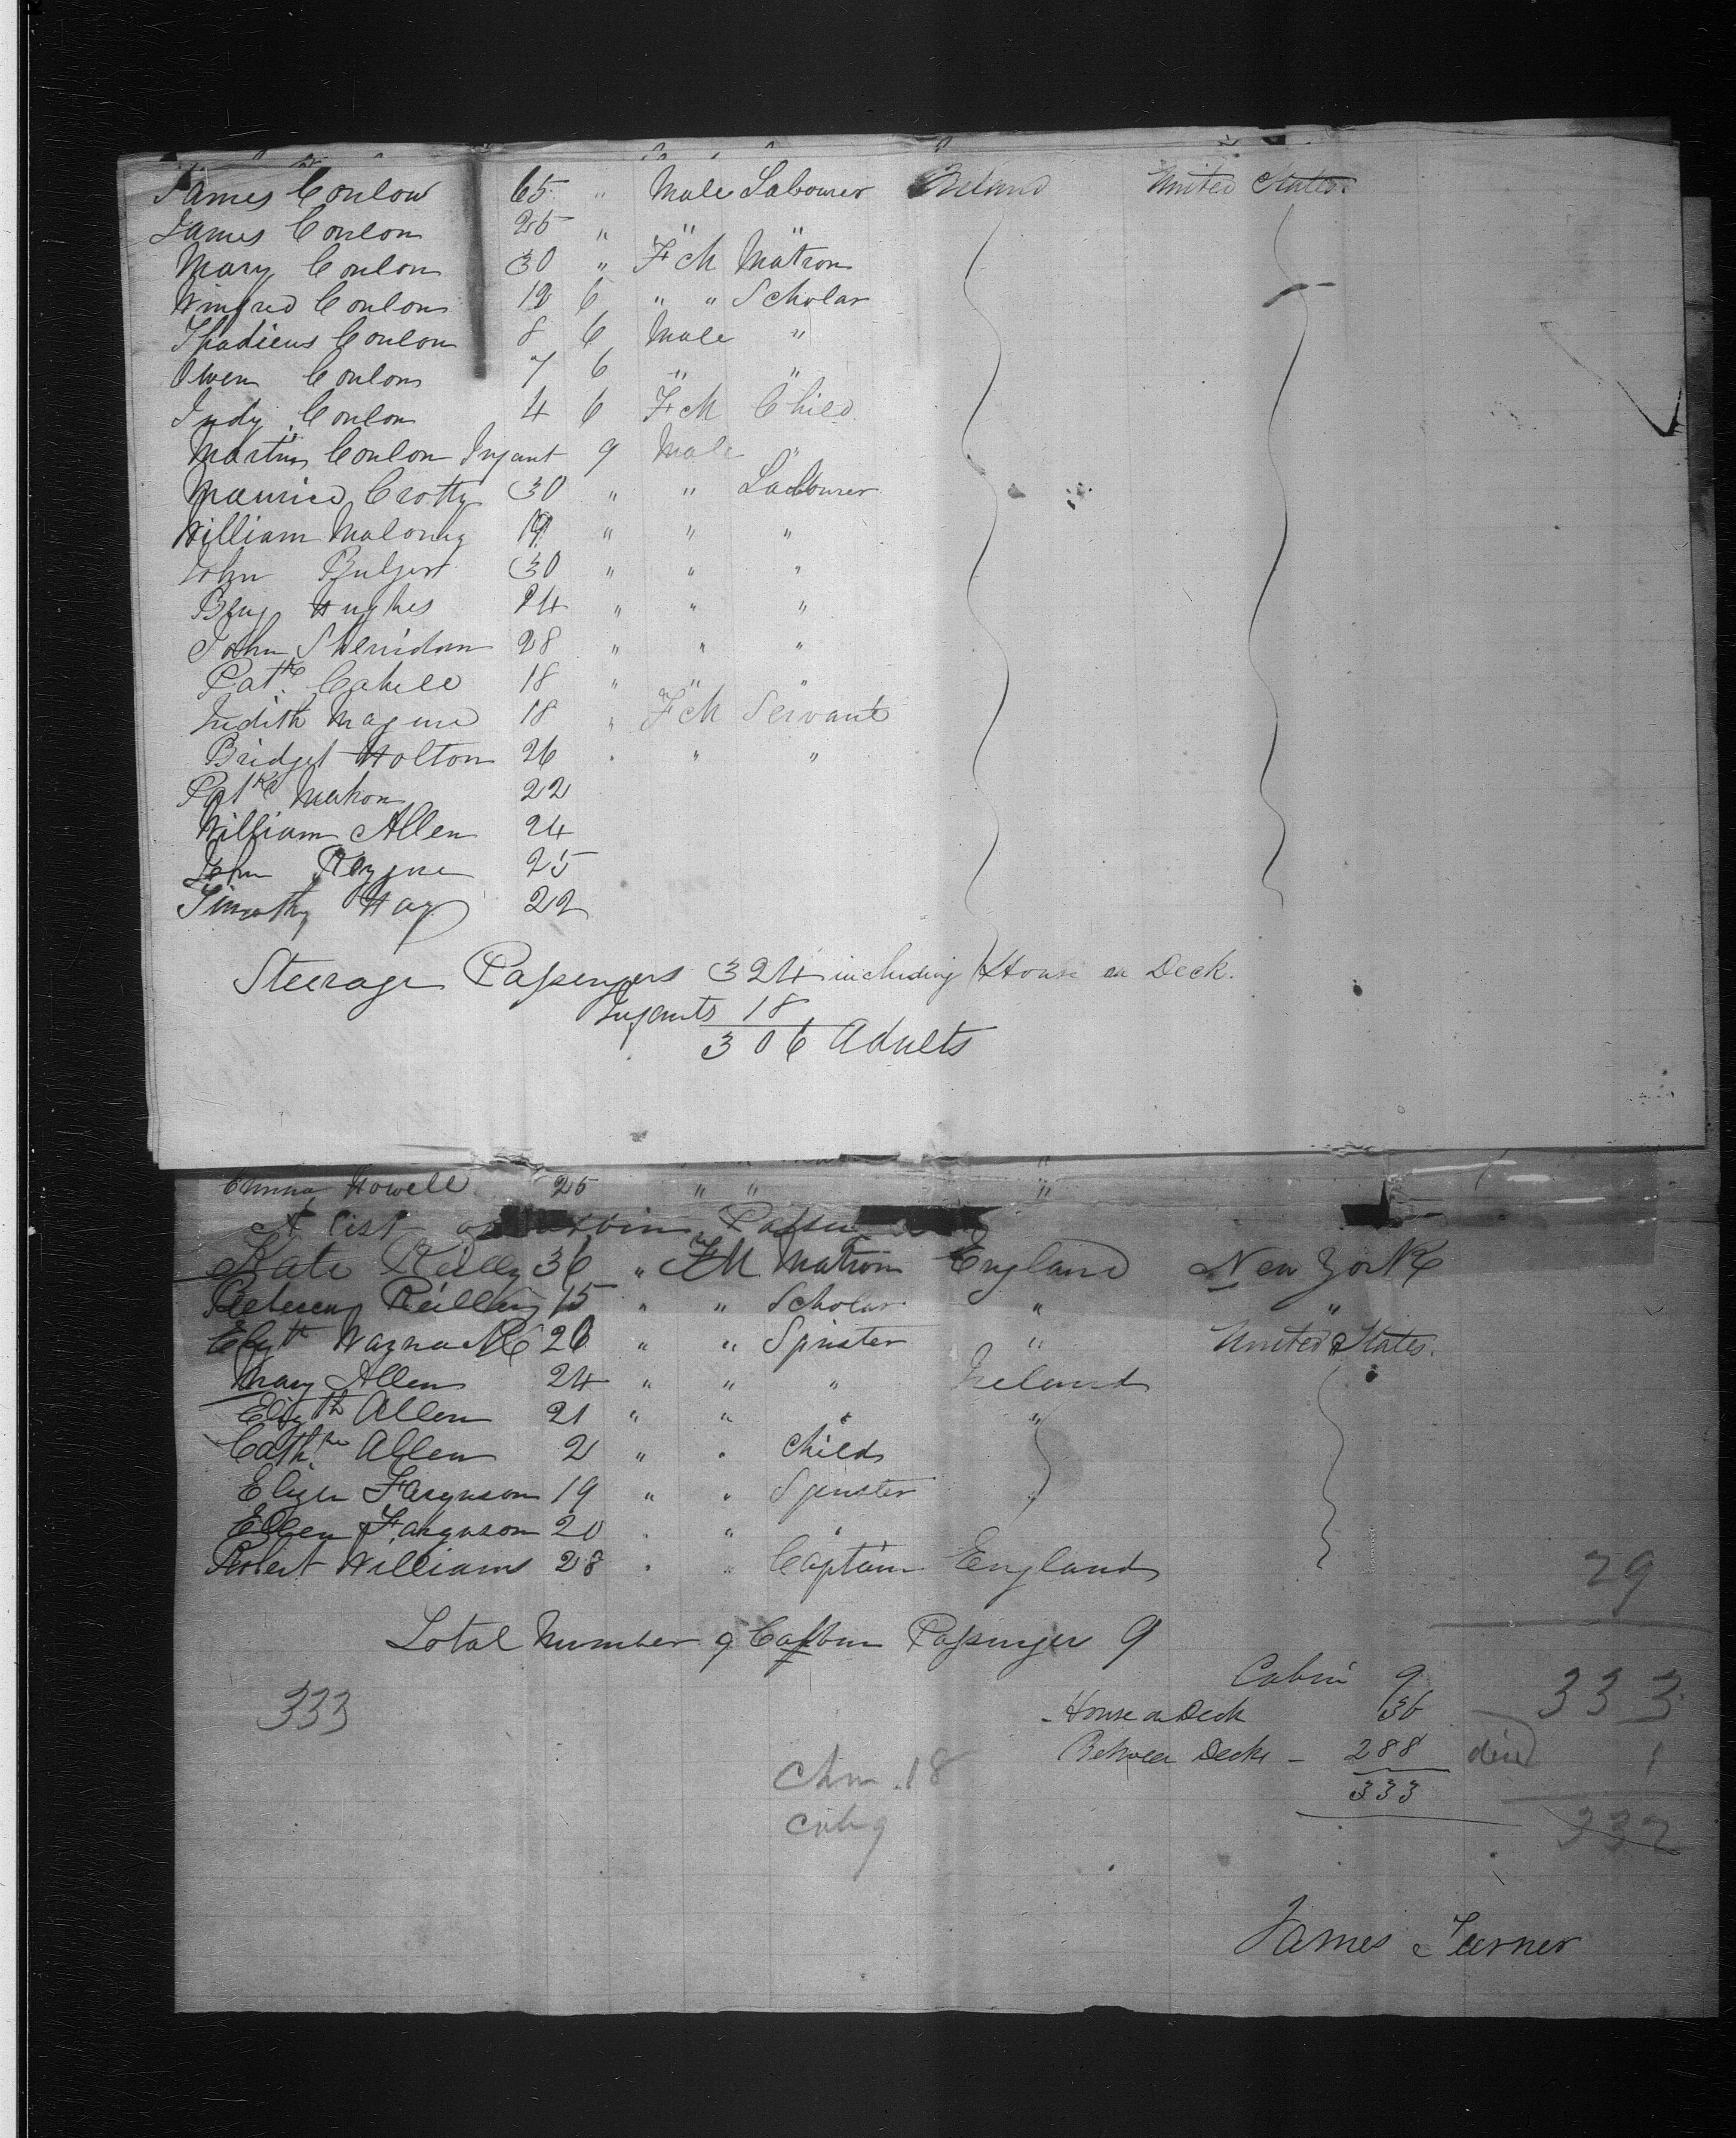 James Conlon 65 " Male Labourer Ireland United States.
James Conlon 25 " " "
Mary Conlon 30 " FeM Matron
Winfred Conlon 12 6 " " Scholar
Thadieus Conlon 8 6 Male "
Owen Conlon 7 6 " "
Judy Conlon 4 6 FeM Child
Martin Conlon Infant 9 Male "
Maurice Crotty 30 " " Labourer
William Malony 19 " " "
John Bulger 30 " " "
Benj Hughes 24 " " "
John Sheridan 28 " " "
Patk Cahill 18 " " "
Judith Maguire 18 " FeM Servant
Bridget Holton 26 " " "
Patk Mahon 22
William Allen 24
John 25
Timothy Hay 22
Steerage Passengers 324 including House on Deck.
Infants 18
306 Adults
Emma Howell 25 " " "
A list Passen
Kate Reilly 36 " FM Matron England New York
Rebecca Reilly 15 " " Scholar " "
Elizth 26 " " Spinster " United States.
Mary Allen 24 " " " Ireland
Elizth Allen 21 " " " "
Cathne Allen 2 " " Child
Eliza Farguson 19 " " Spinster
Ellen Farguson 20 " " "
Robert Williams 28 " " Captain England
29
Total Number of Cabin Passenger 9
Cabin 9
333 House on Deck 36 333
Between Decks - 288 died 1
Chn 18 333
Cab 9 332
James Turner